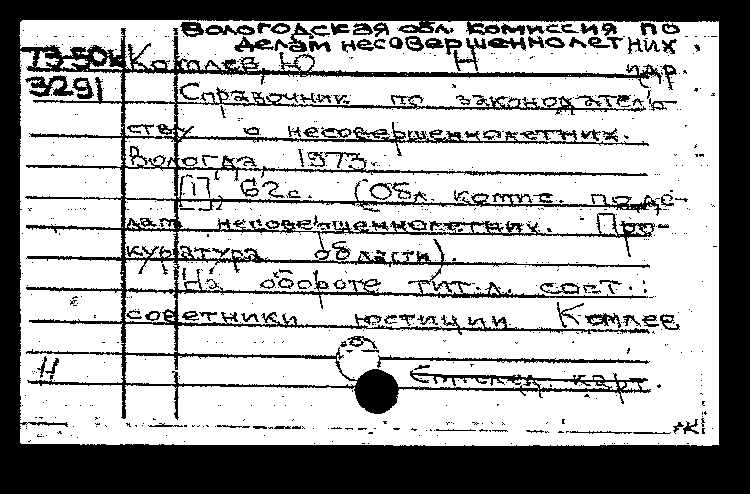 Вологодская обл. комиссия по
делам несовершеннолетних.
73-50к Комлев, Ю Н и др.
3291 Справочник по законодатель-
ству о несовершеннолетних.
Вологда, 1973.
[1], 62с. (Обл. комис. по де-
лам несовершеннолетних. Про-
куратура области).
На обороте тит.л. сост.:
советники юстиции Комлев
Н карт.